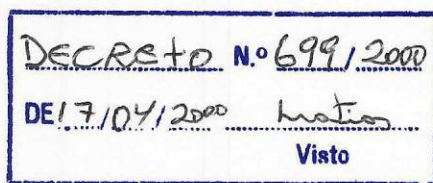 DECRETO N.º 699/2000
DE 17/04/2000
Visto